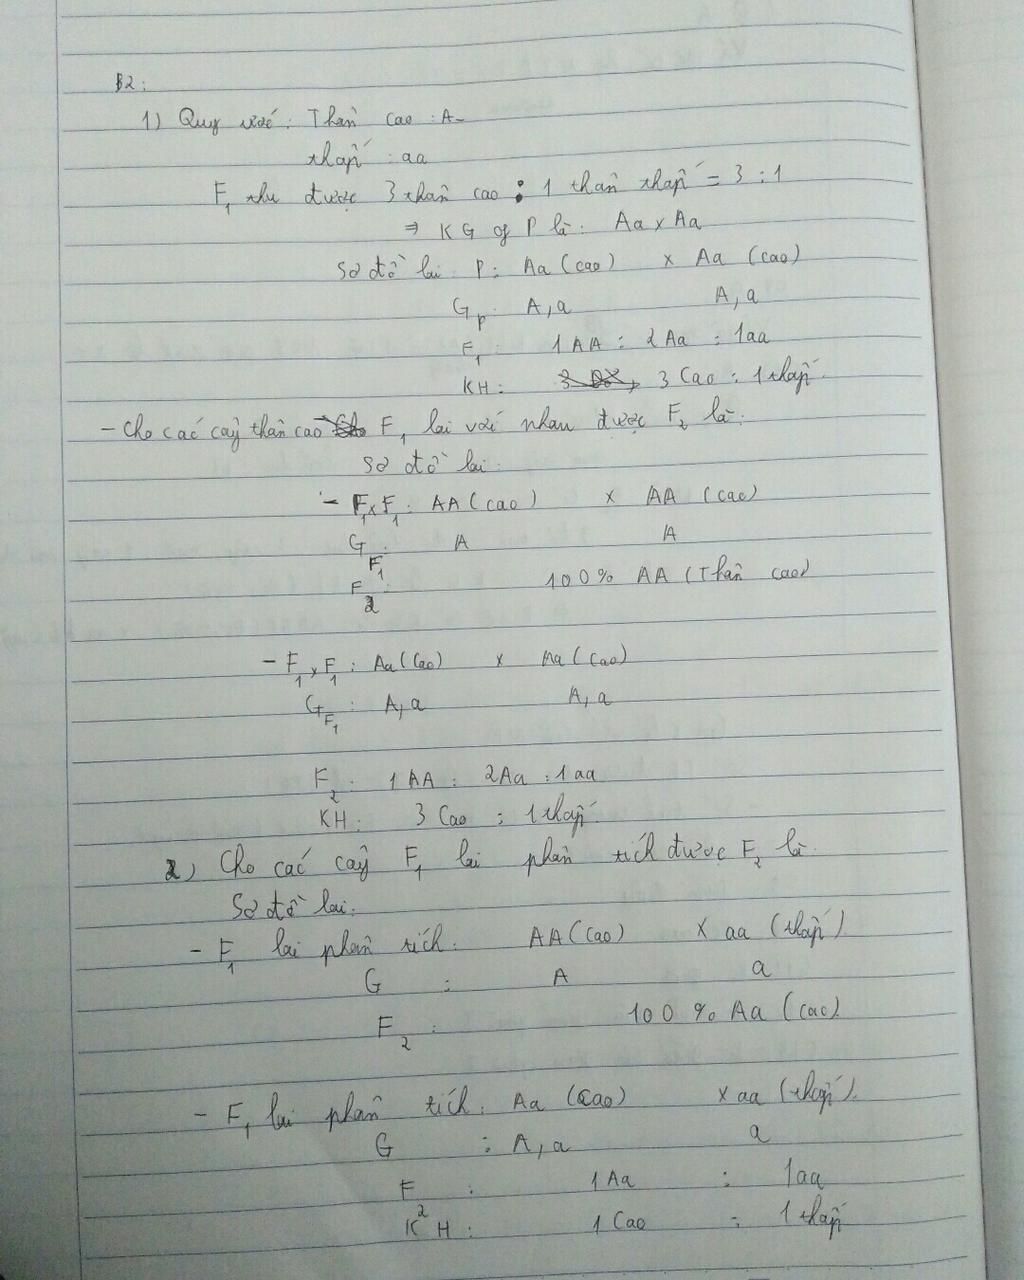 B2:
1) Quy ước: Thân cao : A-
thấp : aa
F1 thu được 3 thân cao : 1 thân thấp = 3 : 1
⇒ KG of P là: Aa x Aa
Sơ đồ lai P: Aa (cao) x Aa (cao)
Gp: A, a A, a
F1: 1AA : 2Aa : 1aa
KH: 3 Cao : 1 thấp.
- Cho các cây thân cao F1 lai với nhau được F2 là:
Sơ đồ lai:
- F1 x F1: AA (cao) x AA (cao)
GF1: A A
F2: 100% AA (Thân cao)
- F1 x F1: Aa (Cao) x Aa (Cao)
GF1: A, a A, a
F2: 1AA : 2Aa : 1aa
KH: 3 Cao : 1 thấp.
2) Cho các cây F1 lai phân tích được F2 là:
Sơ đồ lai:
- F1 lai phân tích: AA (Cao) x aa (thấp)
G : A a
F2: 100% Aa (cao)
- F1 lai phân tích: Aa (Cao) x aa (thấp).
G : A, a a
F2 : 1Aa : 1aa
KH: 1 Cao : 1 thấp